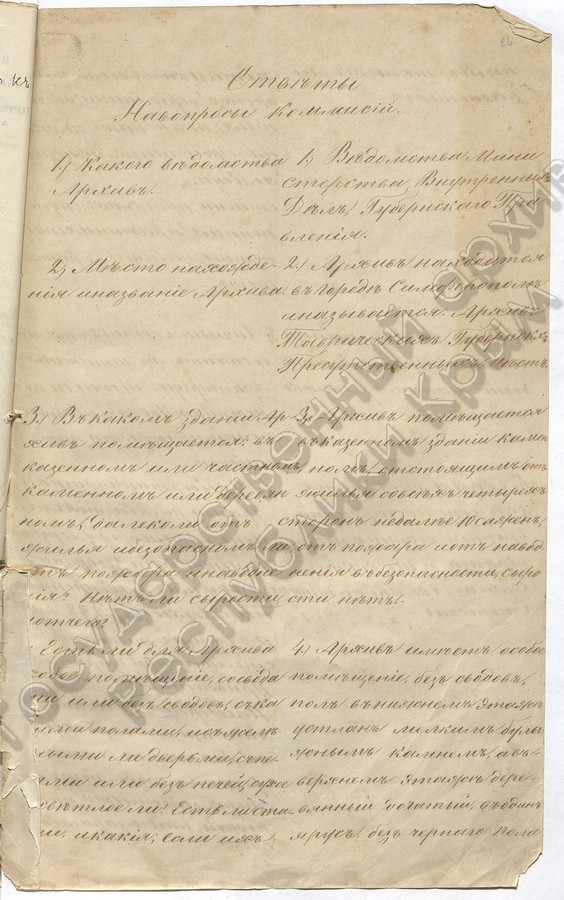 Ответы
На вопросы Коммисіи.
1) Какого вѣдомства
Архивъ?
1) Вѣдомства Мини
стерства Внутреннихъ
Дѣлъ, Губернскаго Пра
вленія.
2) Мѣсто нахожде-
нія и названіе Архива
2) Архивъ находится
въ городѣ Симферополѣ
и называется: Архивъ
Таврическихъ Губернскихъ
Присутственныхъ Мѣстъ.
3) Въ какомъ зданіи Ар
хивъ помѣщается: въ
казенномъ или частномъ,
каменномъ или деревян
номъ, далекомъ отъ
жилья и безопасномъ ли
отъ пожара и наводне
нія? Нѣтъ ли сырости,
отчего?
3) Архивъ помѣщается
въ казенномъ зданіи камен
номъ, отстоящимъ отъ
жилья со всѣхъ четырехъ
сторонъ не далѣе 10 саженъ,
отъ пожара и отъ навод
ненія въ безопасности, сыро
сти нѣтъ.
Есть ли для Архива
особое помѣщеніе, со свода
ми или безъ сводовъ, съ ка
ими полами, и съ желѣз
ными ли дверьми, съ пе
ами или безъ печей, сухое
свѣтлое ли? Есть ли
и какія, если ихъ
4) Архивъ имѣетъ особое
помѣщеніе, безъ сводовъ,
полъ въ нижнемъ этажѣ
устланъ мелкимъ булы
жнымъ камнемъ, а въ
верхнемъ этажѣ дере-
вянный досчатый, въ одинъ
ярусъ безъ чернаго пола
ГОСУДАРСТВЕННЫЙ АРХИВ
РЕСПУБЛИКИ КРЫМ